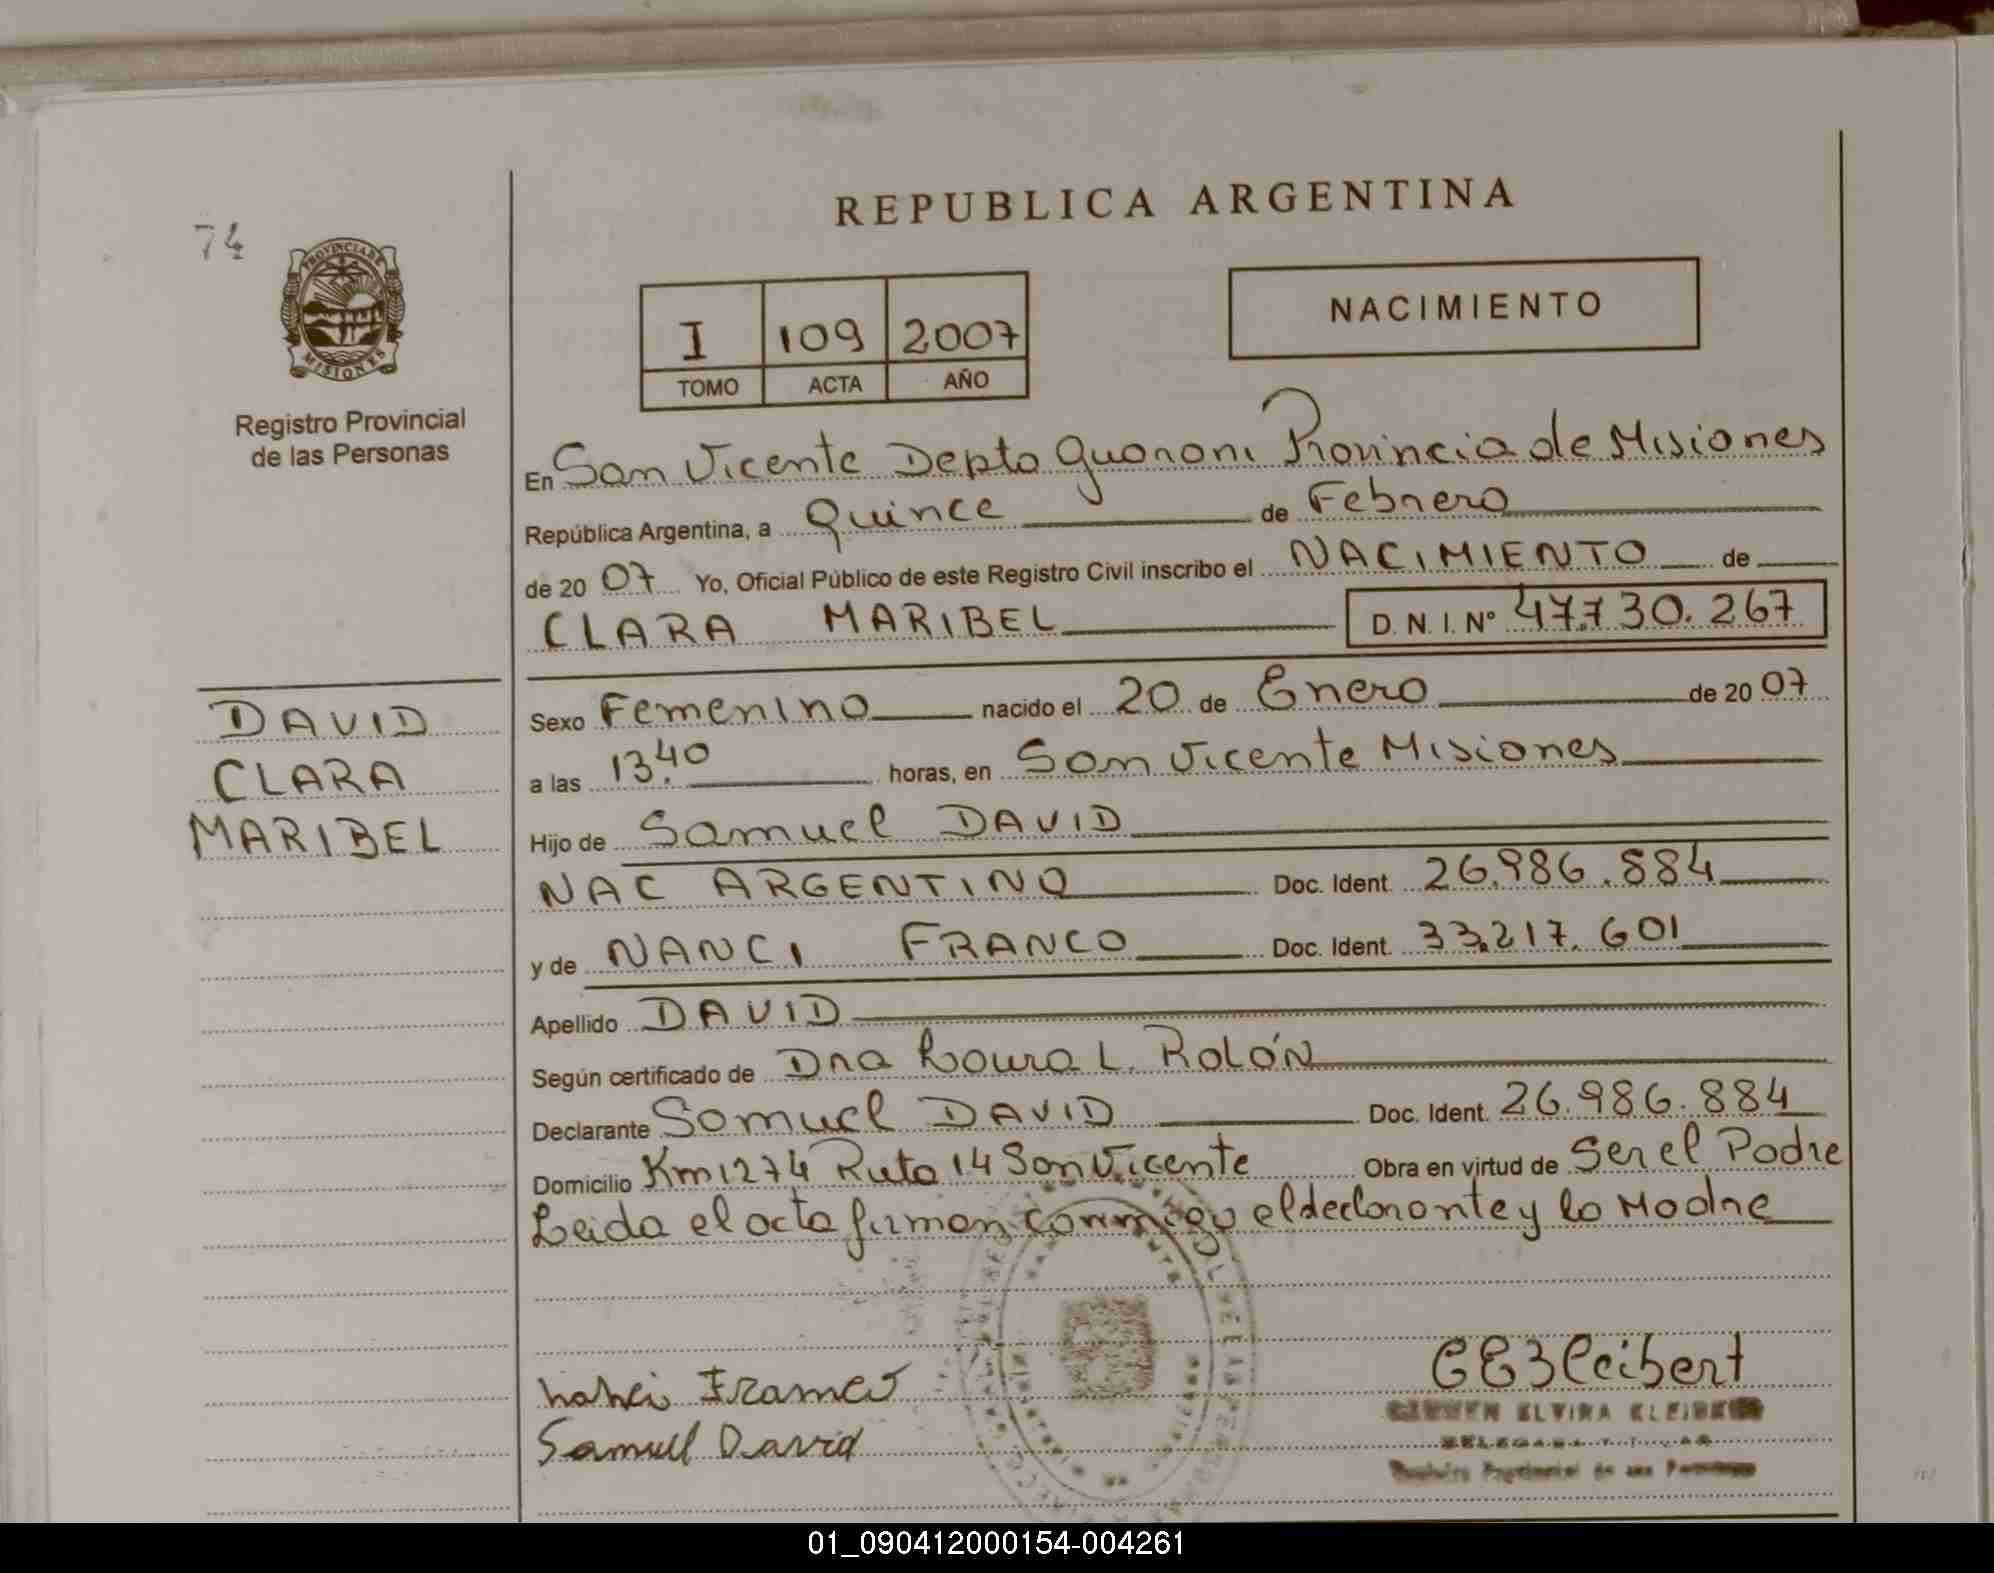 REPUBLICA ARGENTINA
74
PROVINCIA DE
MISIONES
Registro Provincial
de las Personas
I 109 2007
TOMO ACTA AÑO
NACIMIENTO
En San Vicente Depto Guarani Provincia de Misiones
República Argentina, a Quince de Febrero
de 20 07 Yo, Oficial Público de este Registro Civil inscribo el NACIMIENTO de
CLARA MARIBEL D. N. I. Nº 47.730.267
DAVID
CLARA
MARIBEL
Sexo Femenino nacido el 20 de Enero de 20 07
a las 13.40 horas, en San Vicente Misiones
Hijo de Samuel DAVID
NAC ARGENTINO Doc. Ident. 26.986.884
y de NANCI FRANCO Doc. Ident. 33.217.601
Apellido DAVID
Según certificado de Dra Laura L. ROLÓN
Declarante Samuel DAVID Doc. Ident. 26.986.884
Domicilio Km 1274 Ruta 14 San Vicente Obra en virtud de Ser el Padre
Leida el acta firman conmigo el declarante y la Madre
Samuel David
CE Kleibert
CARMEN ELVIRA KLEIBERT
01_090412000154-004261